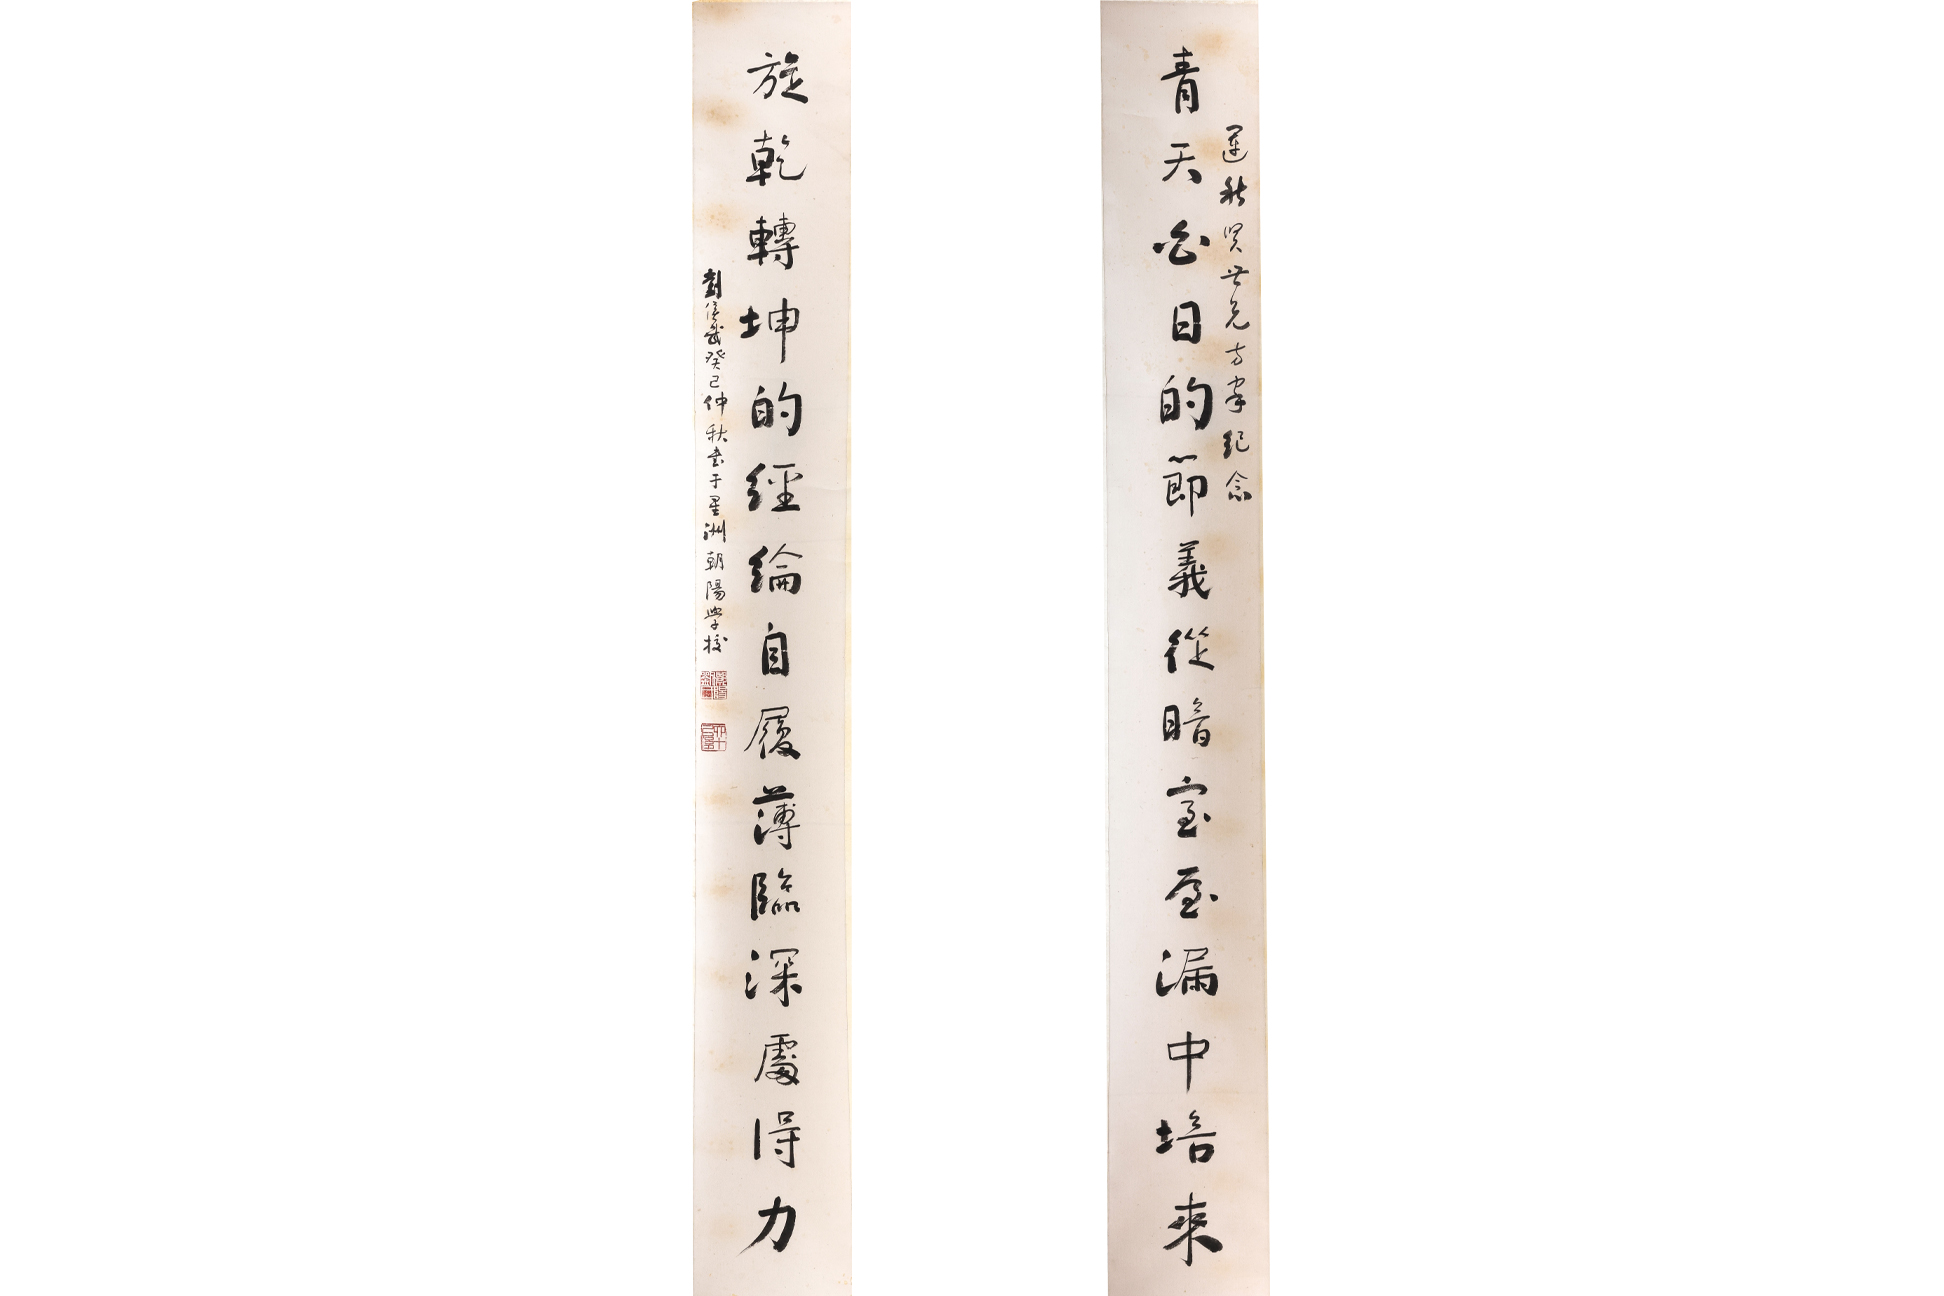 運秋賢世兄方家紀念
青天白日的節義從暗室屋漏中培來
旋乾轉坤的經綸自履薄臨深處得力
劉侯武癸巳仲秋書于星洲朝陽學校